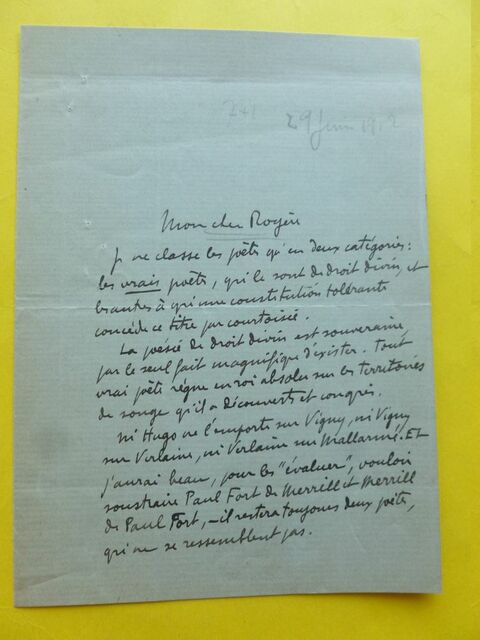 241
29 Juin 1912
Mon cher Royère
Je ne classe les poëtes qu'en deux catégories :
les vrais poëtes, qui le sont de droit divin, et
les autres à qui une constitution tolérante
concède ce titre par courtoisie.
La poésie de droit divin est souveraine,
par le seul fait magnifique d'exister. Tout
vrai poëte règne en roi absolu sur les territoires
de songe qu'il a découverts et conquis.
Ni Hugo ne l'emporte sur Vigny, ni Vigny
sur Verlaine, ni Verlaine sur Mallarmé. Et
j'aurai beau, pour les "évaluer", vouloir
soustraire Paul Fort de Merrill et Merrill
de Paul Fort, — il restera toujours deux poëtes,
qui ne se ressemblent pas.